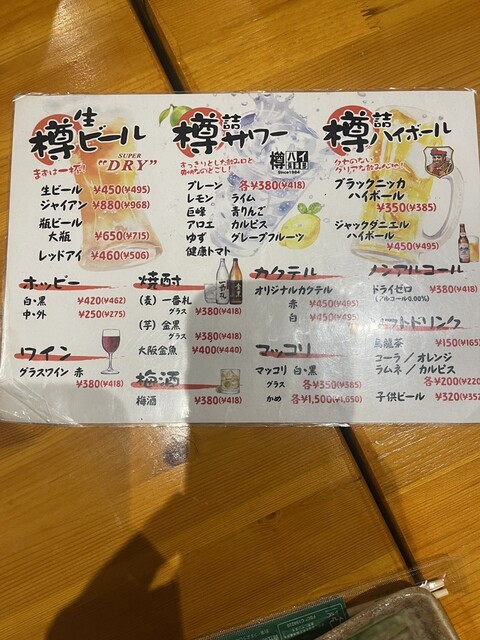 樽生ビール
まずは一杯!
SUPER
"DRY"
生ビール ¥450(¥495)
ジャイアン ¥880(¥968)
瓶ビール
大瓶 ¥650(¥715)
レッドアイ ¥460(¥506)
樽詰サワー
すっきりとした飲み口と
爽快なのどごし!
樽ハイ
Since1984
プレーン 各¥380(¥418)
レモン ライム
巨峰 青りんご
アロエ カルピス
ゆず グレープフルーツ
健康トマト
樽詰ハイボール
クセのない、
クリアな飲みごたえ!
ブラックニッカ
ハイボール
¥350(¥385)
ジャックダニエル
ハイボール
¥450(¥495)
ホッピー
白・黒 ¥420(¥462)
中・外 ¥250(¥275)
ワイン
グラスワイン 赤
¥380(¥418)
焼酎
(麦) 一番札
グラス ¥380(¥418)
(芋) 金黒
グラス ¥380(¥418)
大阪金魚 ¥400(¥440)
梅酒
梅酒 ¥380(¥418)
カクテル
オリジナルカクテル
赤 ¥450(¥495)
白 ¥450(¥495)
マッコリ
マッコリ 白・黒
グラス 各¥350(¥385)
かめ 各¥1,500(¥1,650)
ノンアルコール
ドライゼロ ¥380(¥418)
(アルコール0.00%)
ソフトドリンク
烏龍茶 ¥150(¥165)
コーラ/オレンジ
ラムネ/カルピス
各¥200(¥220
子供ビール ¥320(¥352